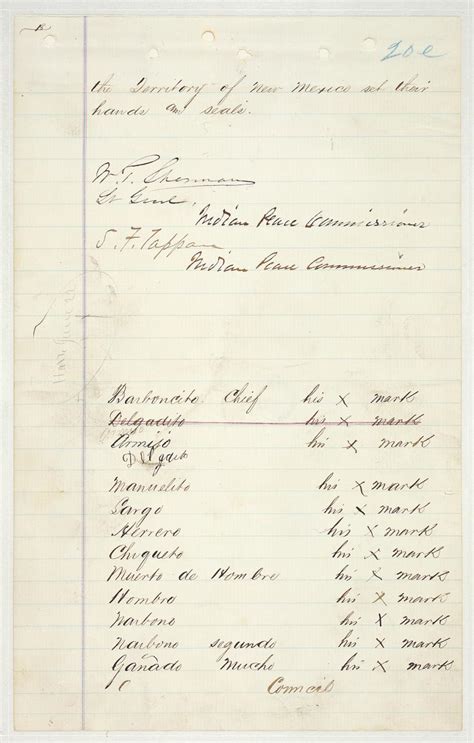 20e
the Territory of New Mexico set their
hands and seals.
W. T. Sherman
Lt Genl
Indian Peace Commissioner
S. F. Tappan
Indian Peace Commissioner
Barboncito Chief his X mark
Delgadito his X mark
Armijo his X mark
Delgado
Manuelito his X mark
Largo his X mark
Herrero his X mark
Chiqueto his X mark
Muerto de Hombre his X mark
Hombro his X mark
Narbono his X mark
Narbono segundo his X mark
Ganado Mucho his X mark
Council